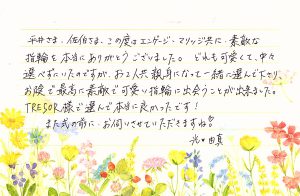 平井さま、佐伯さま、この度はエンゲージ・マリッジ共に、素敵な
指輪を本当にありがとうございました。どれも可愛くて、中々
選べずにいたのですが、お2人共親身になって一緒に選んで下さり、
お陰で最高に素敵で可愛い指輪に出会うことが出来ました。
TRESOR様で選んで本当に良かったです!
また式の前に、お伺いさせていただきますね